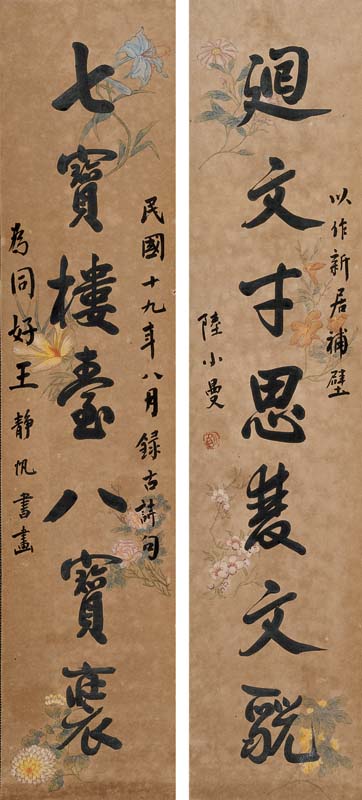 以作新居補壁
迴文才思雙文貌
陸小曼
民國十九年八月錄古詩句
七寶樓臺八寶裝
為同好王靜帆書畫